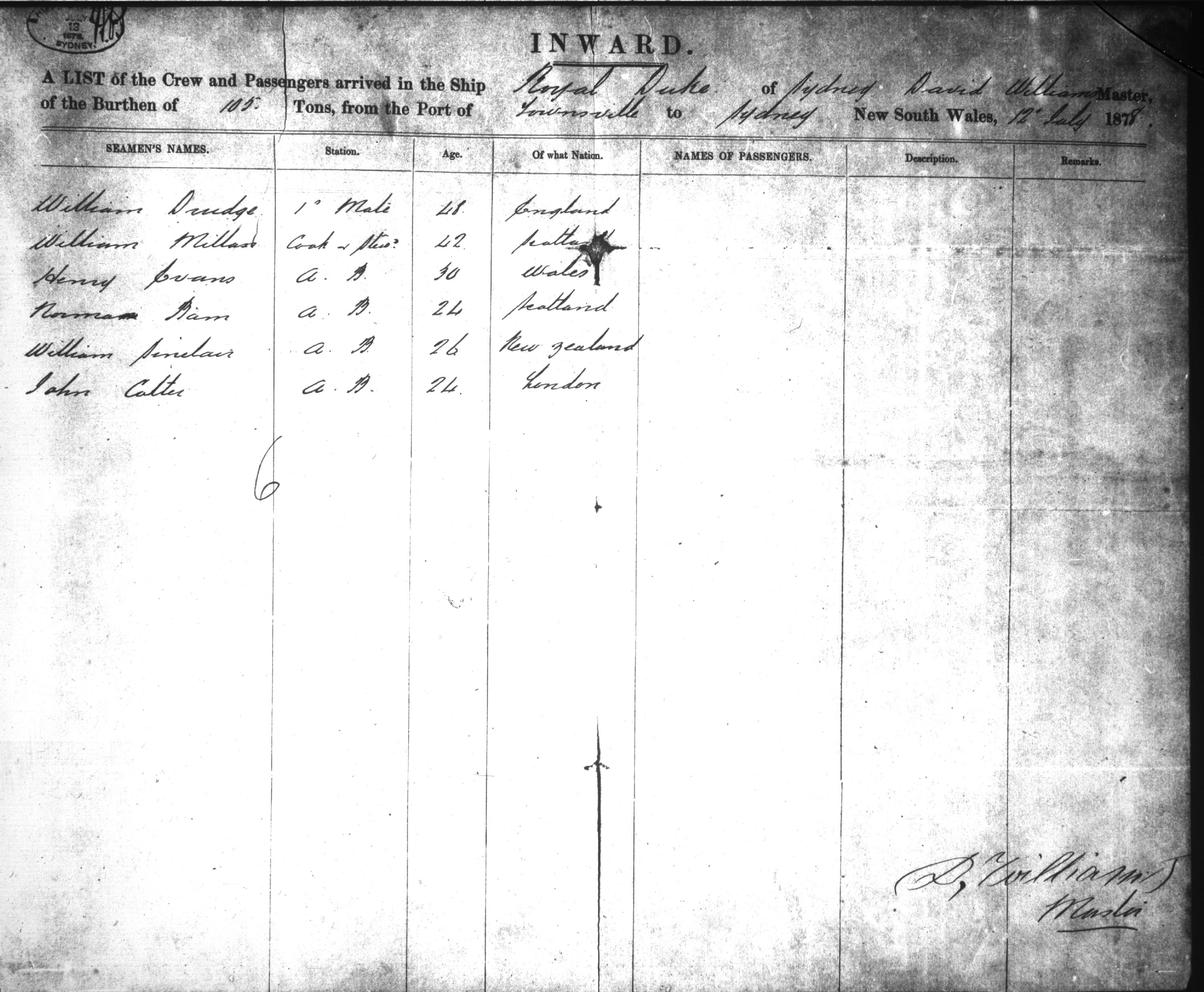 13
1878
SYDNEY.
INWARD.
A LIST of the Crew and Passengers arrived in the Ship Royal Duke of Sydney David Williams Master,
of the Burthen of 105 Tons, from the Port of Townsville to Sydney New South Wales, 12th July 1878.
SEAMEN'S NAMES. Station. Age. Of what Nation. NAMES OF PASSENGERS. Description. Remarks.
William Drudge 1st Mate 48 England
William Millar Cook & Stewd 42 Scotland
Henry Evans A. B. 30 Wales
Norman A. B. 24 Scotland
William Sinclair A. B. 26 New Zealand
John A. B. 24 London
6
D, Williams
Master